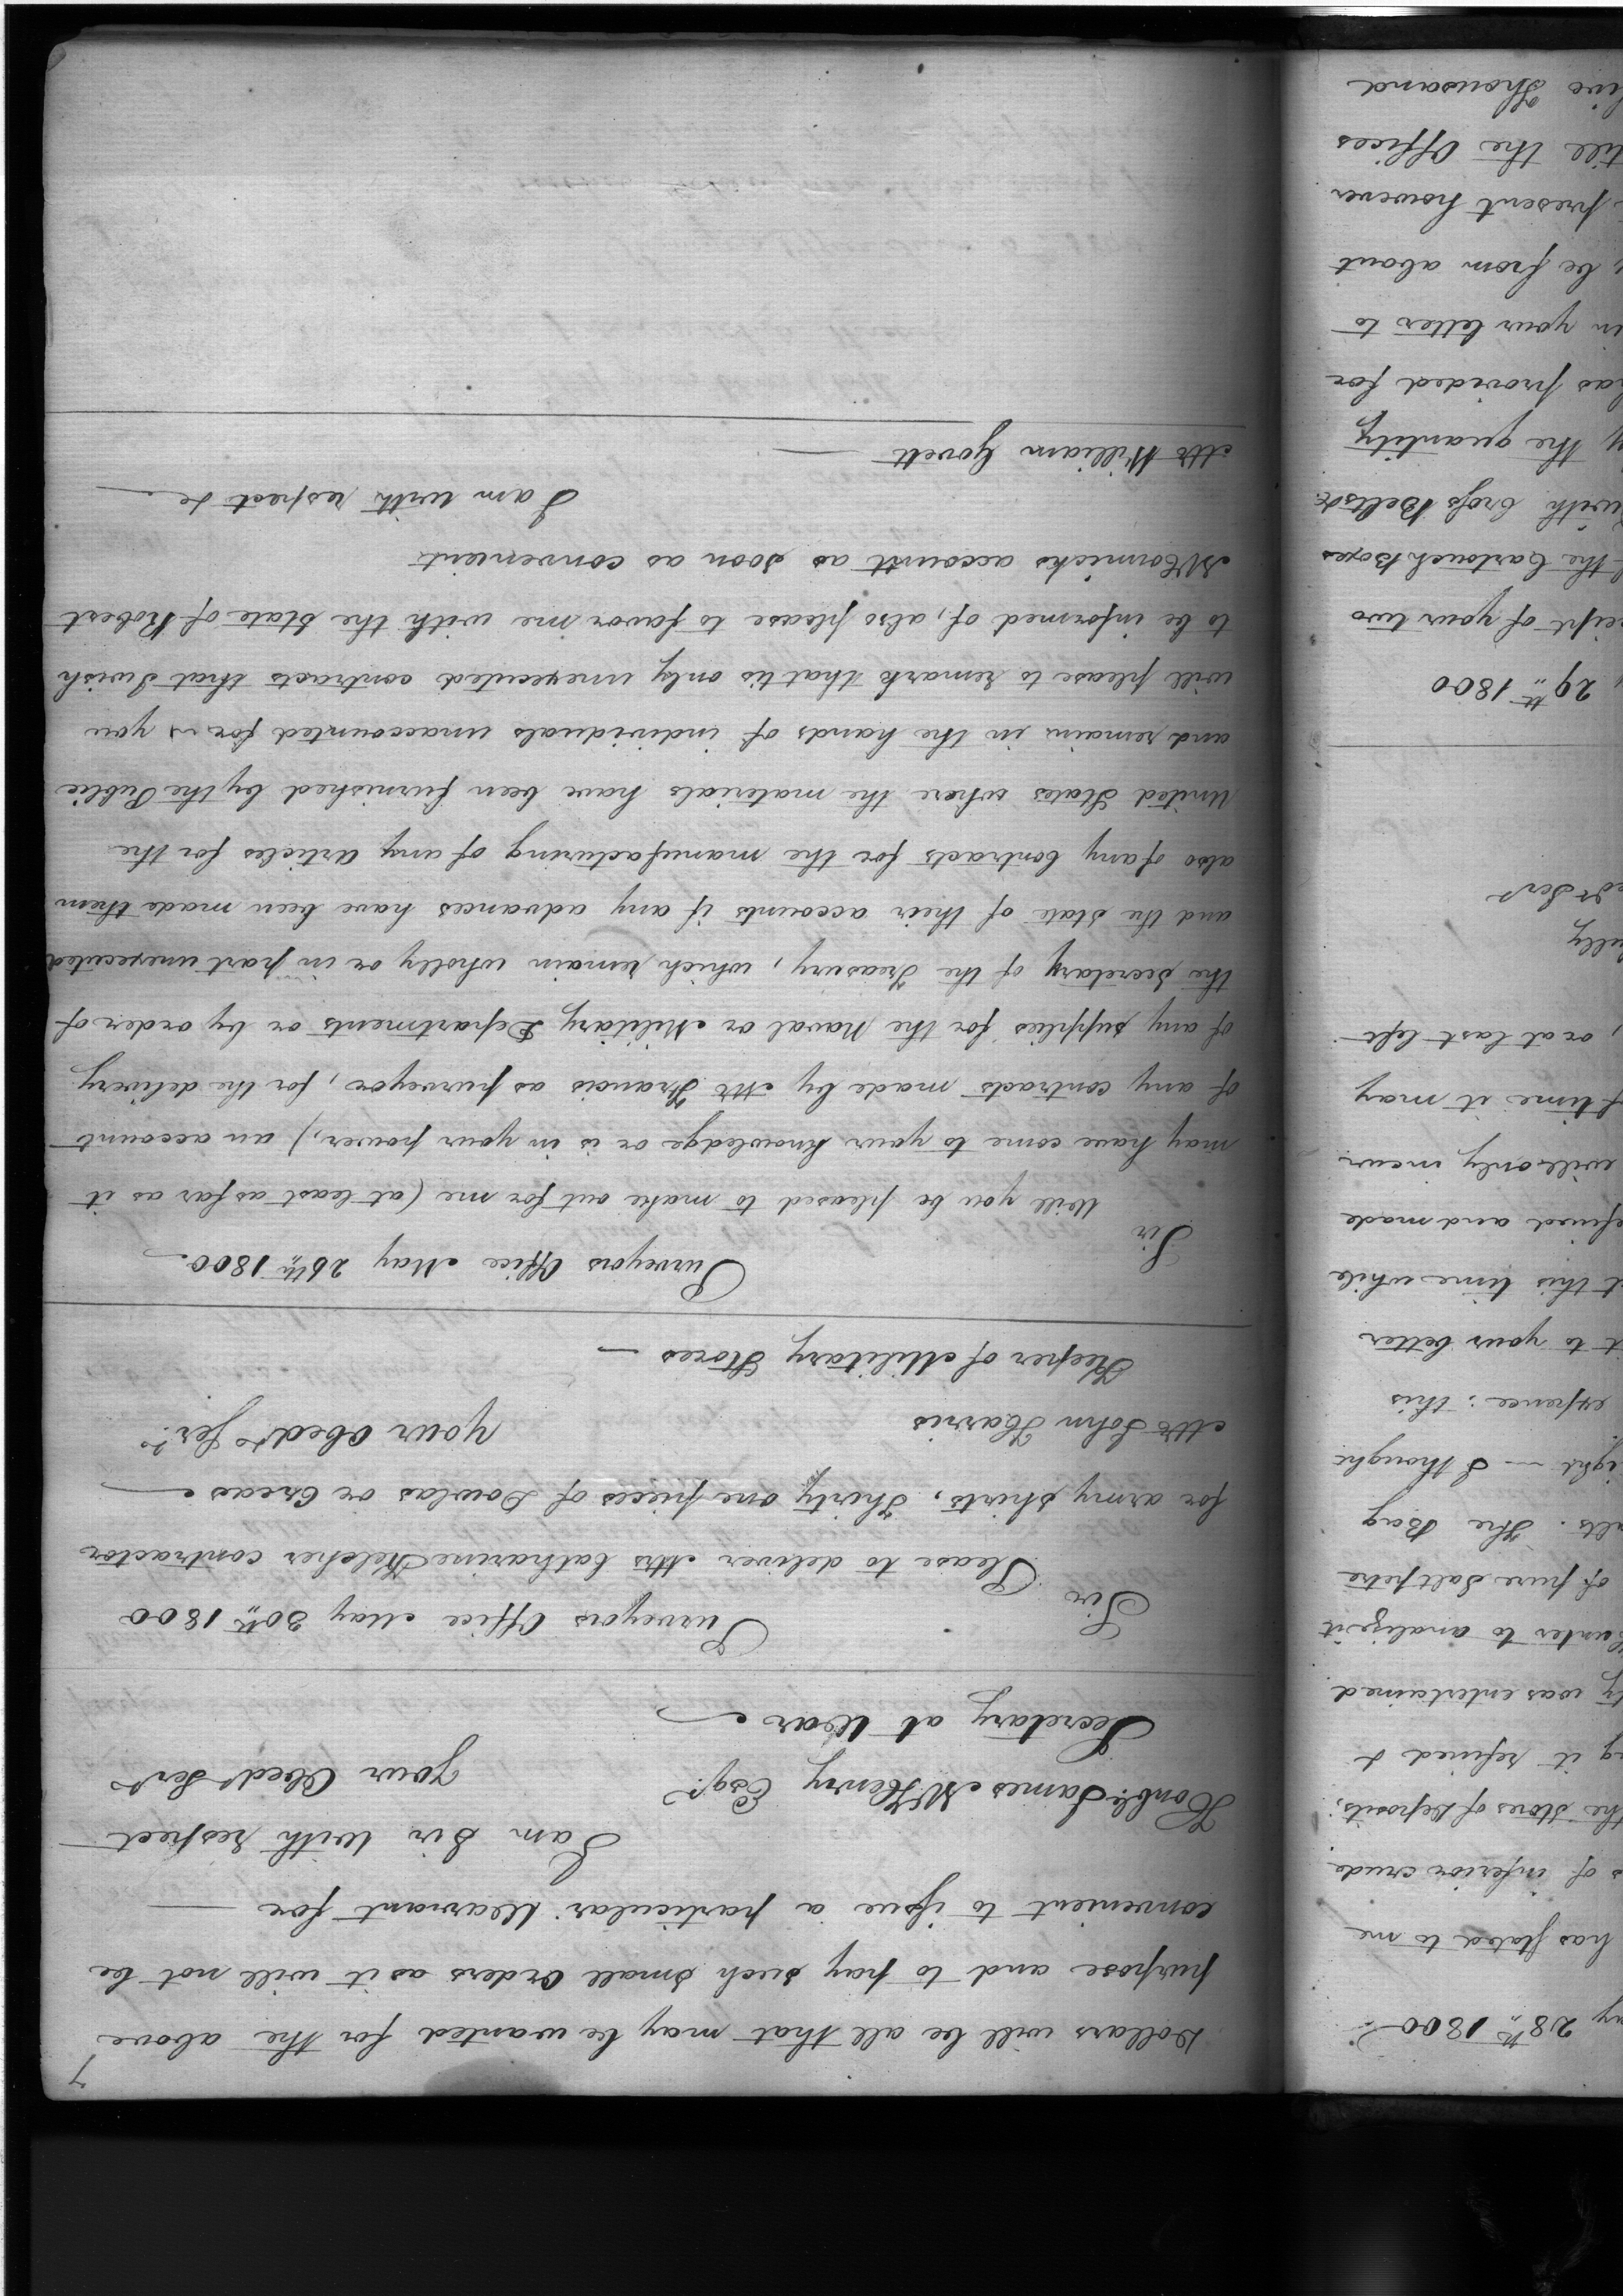 7
Dollars will be all that may be wanted for the above
purpose and to pay such small orders as it will not be
convenient to issue a particular Warrant for
I am Sir with respect
Your Obedt Servt
Honble. James McHenry Esqr.
Secretary at War
Surveyors Office May 30th 1800
Sir
Please to deliver Mrs Catharine Kelcher contractor
for army shirts, Thirty one pieces of Dowlas or Creas
Your Obedt Servt.
Mr John Harris
Keeper of Military Stores
Purveyors Office May 26th 1800
Sir
Will you be pleased to make out for me (at least as far as it
may have come to your knowledge or is in your power,) an account
of any contracts made by Mr Francis as purveyor, for the delivery
of any supplies for the Naval or Military Departments or by order of
the Secretary of the Treasury, which remain wholly or in part unexecuted
and the state of their accounts if any advances have been made them
also of any Contracts for the manufacturing of any articles for the
United States where the materials have been furnished by the Public
and remain in the hands of individuals unaccounted for - you
will please to remark that tis only unexecuted contracts that I wish
to be informed of, also please to favor me with the State of Robert
McCormicks account as soon as convenient
I am with respect &c
Mr William Govett
28th 1800
has stated to me
of inferior crude
the Stores of Deposits,
it refined &
was entertained
Hunter to analize it
of pure Saltpetre
The Bag
I thought
expence: this
to your better
this time while
refined and made
will only incur
time it may
or at last left
Servt
29th 1800
of your two
the Cartouch Boxes
with Cross Belts &c
the quantity
has provided for
in your letter to
be from about
present however
till the Offices
Thousand